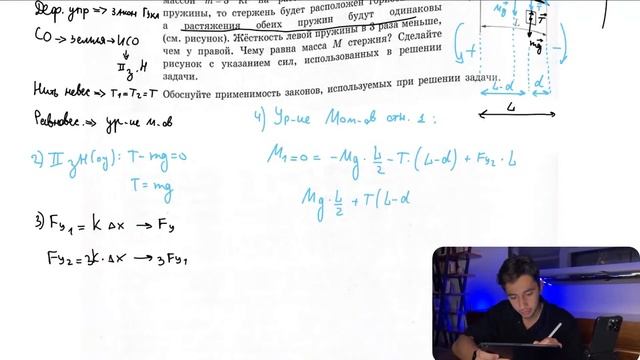 Деф. упр => закон Гука
СО -> земля -> ИСО
II з. Н
Нить невес => T₁ = T₂ = T
Равновес. => ур-ие м-ов
пружины, то стержень будет расположен
а растяжения обеих пружин будут одинаковы
(см. рисунок). Жёсткость левой пружины в 3 раза меньше,
чем у правой. Чему равна масса M стержня? Сделайте
рисунок с указанием сил, использованных в решении
задачи.
Обоснуйте применимость законов, используемых при решении задачи.
Mg
L
T
T
mg
+
-
L-d
d
L
2) II з Н (оу): T - mg = 0
T = mg
3) Fу₁ = k Δx -> Fу
Fу₂ = 3k · Δx -> 3Fу₁
4) Ур-ие Мом-ов отн. 1:
M₁ = 0 = -Mg · L/2 - T · (L-d) + Fу₂ · L
Mg · L/2 + T (L-d